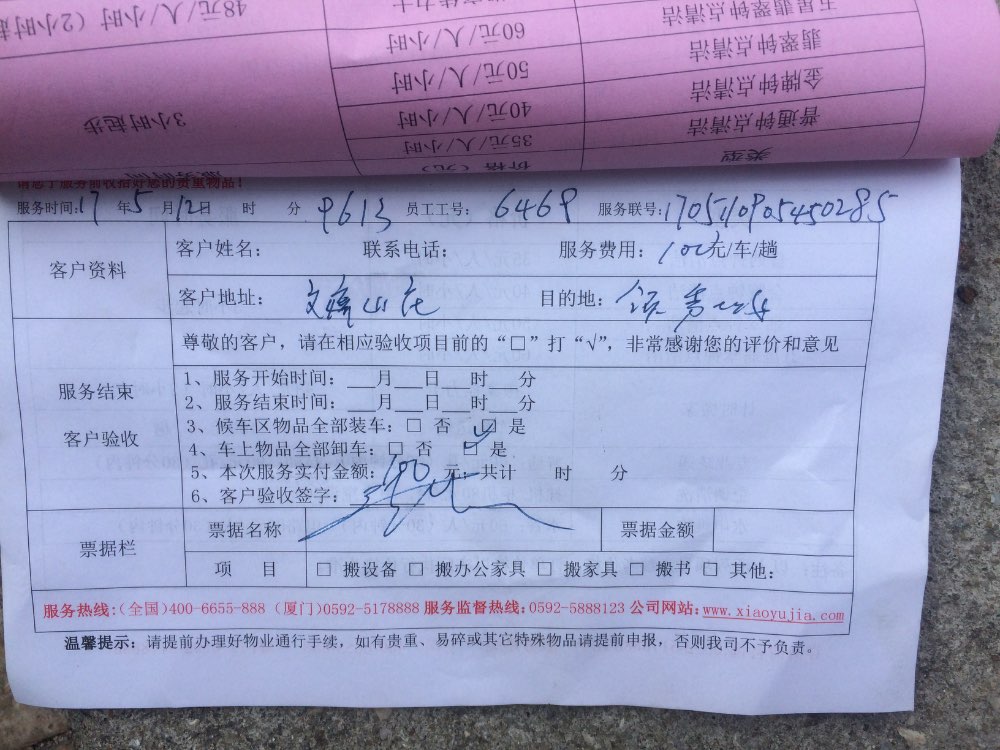 48元/人/小时（2小时起
60元/人/小时 翡翠钟点清洁
50元/人/小时 金牌钟点清洁
3小时起步 40元/人/小时 普通钟点清洁
35元/人/小时
价格（元） 类型
请您于服务前收拾好您的贵重物品！
服务时间:17 年5 月12日 时 分 9613 员工工号: 6469 服务联号:
客户资料
客户姓名： 联系电话： 服务费用： 100元/车/趟
客户地址： 目的地：
尊敬的客户，请在相应验收项目前的“□”打“√”，非常感谢您的评价和意见
服务结束
客户验收
1、服务开始时间：___月___日___时___分
2、服务结束时间：___月___日___时___分
3、候车区物品全部装车：□ 否 □ 是
4、车上物品全部卸车：□ 否 ☑ 是
5、本次服务实付金额：100 元；共计 时 分
6、客户验收签字：
票据栏
票据名称 票据金额
项 目 □ 搬设备 □ 搬办公家具 □ 搬家具 □ 搬书 □ 其他：
服务热线:(全国)400-6655-888 (厦门)0592-5178888 服务监督热线:0592-5888123 公司网站:www.xiaoyujia.com
温馨提示：请提前办理好物业通行手续，如有贵重、易碎或其它特殊物品请提前申报，否则我司不予负责。